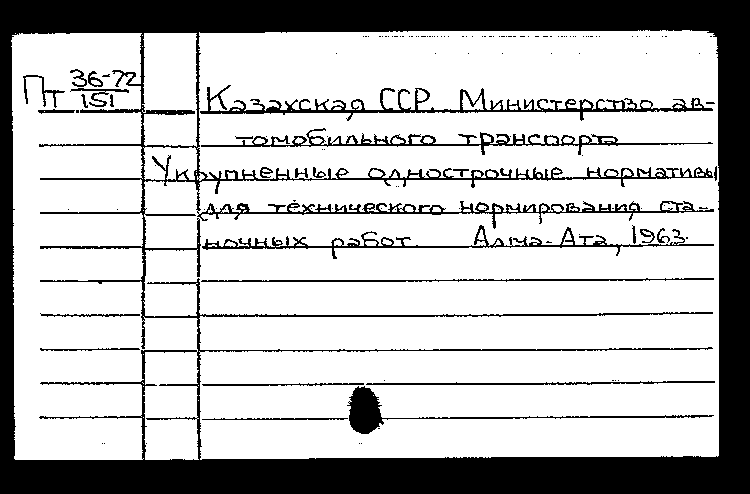 Пт 36-72/151
Казахская ССР. Министерство ав-
томобильного транспорта
Укрупненные однострочные нормативы
для технического нормирования ста-
ночных работ. Алма-Ата, 1963.